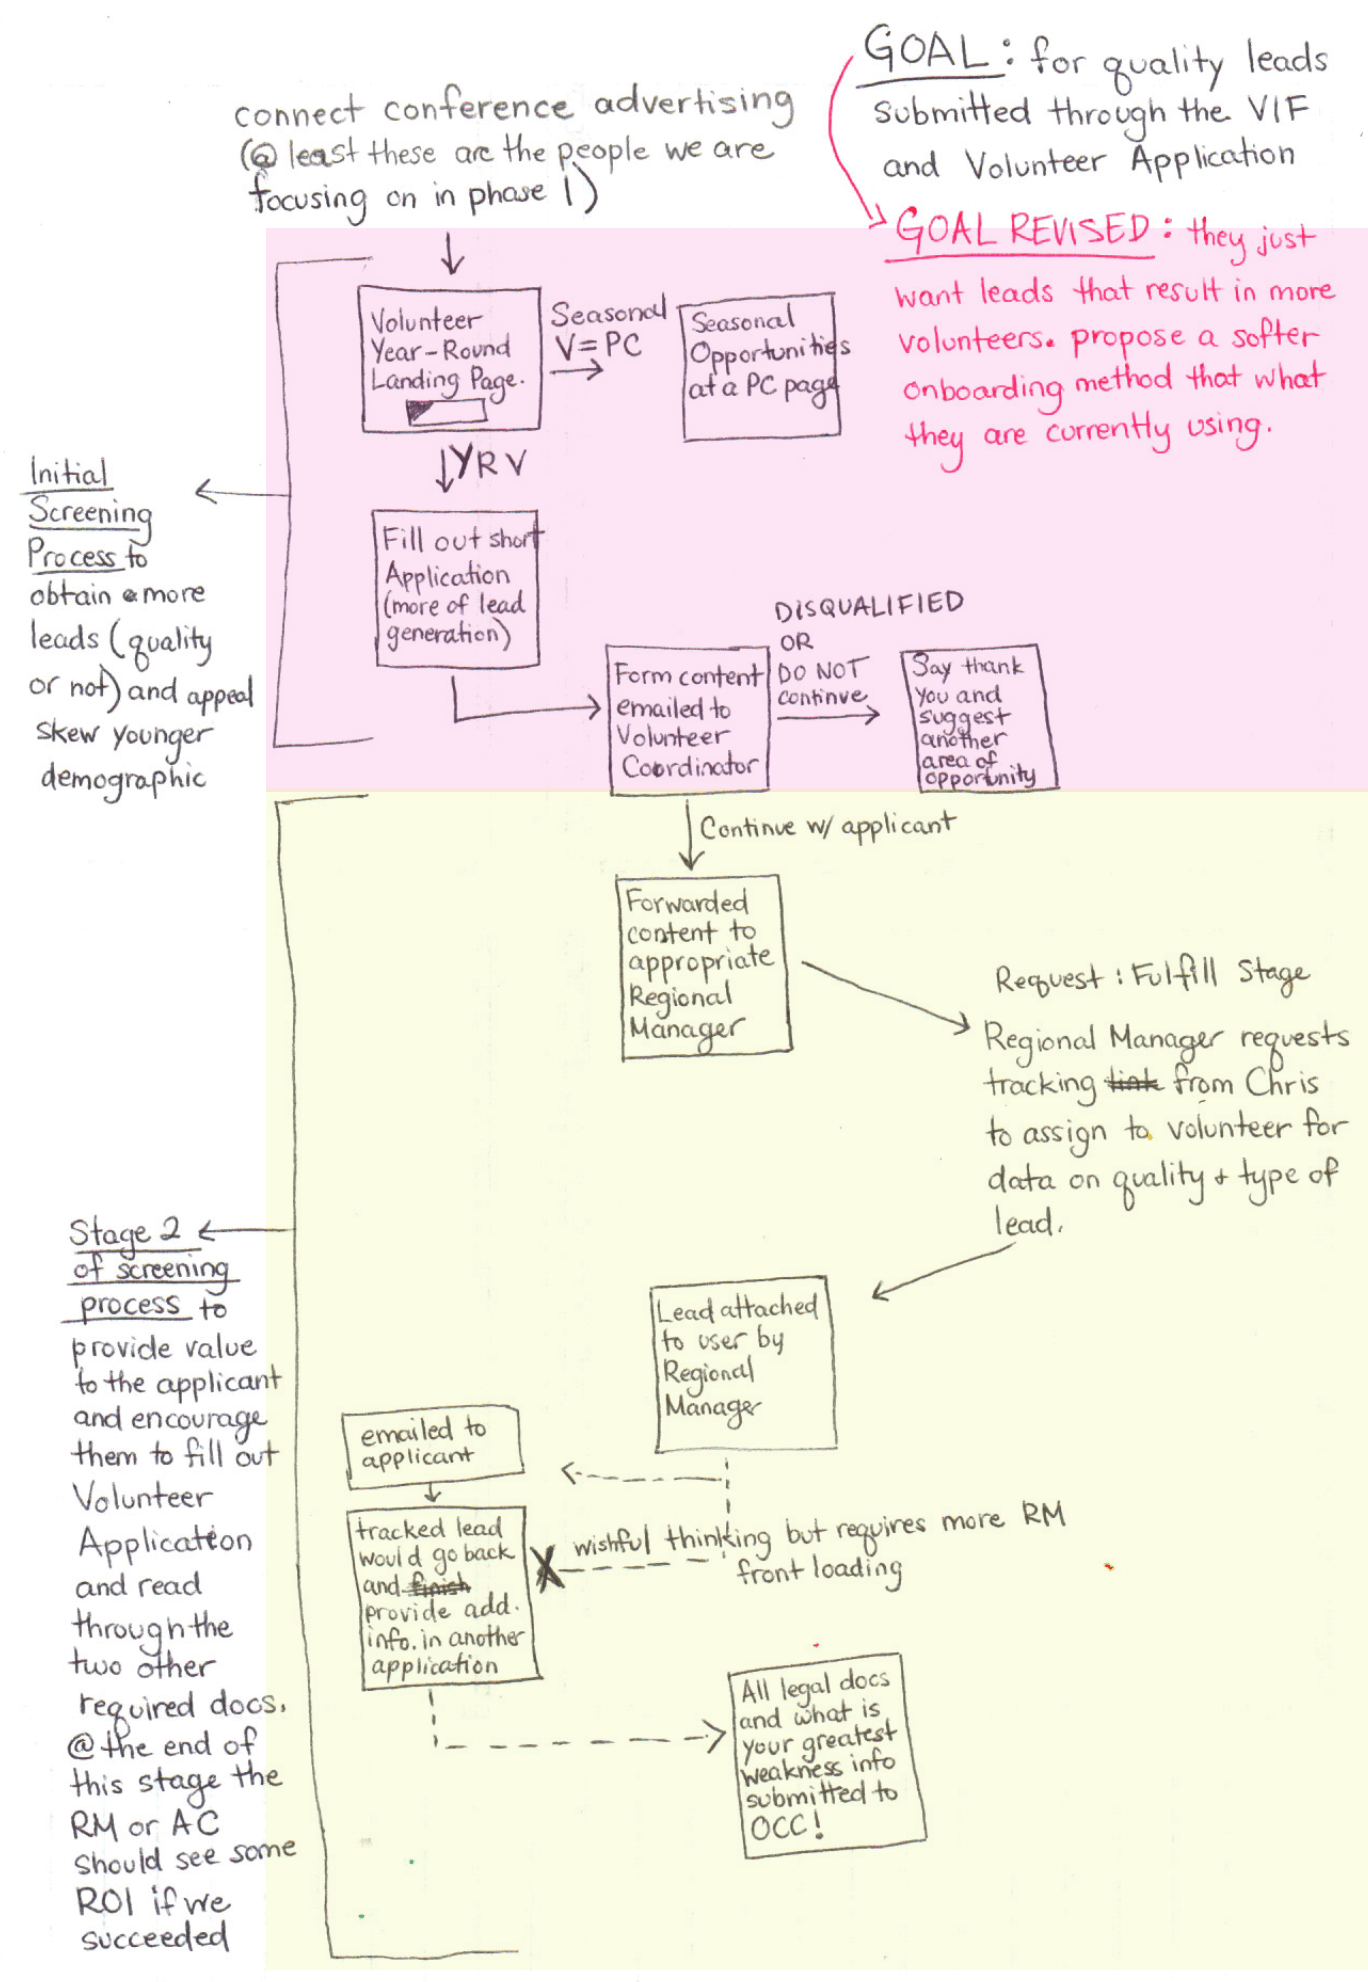 GOAL: for quality leads
submitted through the VIF
and Volunteer Application
connect conference advertising
(@ least these are the people we are
focusing on in phase 1)
GOAL REVISED: they just
want leads that result in more
volunteers. propose a softer
onboarding method that what
they are currently using.
Volunteer
Year-Round
Landing Page.
Seasonal
V=PC
Seasonal
Opportunities
at a PC page
YRV
Initial
Screening
Process to
obtain more
leads (quality
or not) and appeal
skew younger
demographic
Fill out short
Application
(more of lead
generation)
Form content
emailed to
Volunteer
Coordinator
DISQUALIFIED
OR
DO NOT
continue
Say thank
you and
suggest
another
area of
opportunity
Continue w/ applicant
Forwarded
content to
appropriate
Regional
Manager
Request: Fulfill Stage
Regional Manager requests
tracking link from Chris
to assign to volunteer for
data on quality + type of
lead.
Stage 2
of screening
process to
provide value
to the applicant
and encourage
them to fill out
Volunteer
Application
and read
through the
two other
required docs.
@ the end of
this stage the
RM or AC
should see some
ROI if we
succeeded
Lead attached
to user by
Regional
Manager
emailed to
applicant
tracked lead
would go back
and finish
provide add.
info. in another
application
X
wishful thinking but requires more RM
front loading
All legal docs
and what is
your greatest
weakness info
submitted to
OCC!